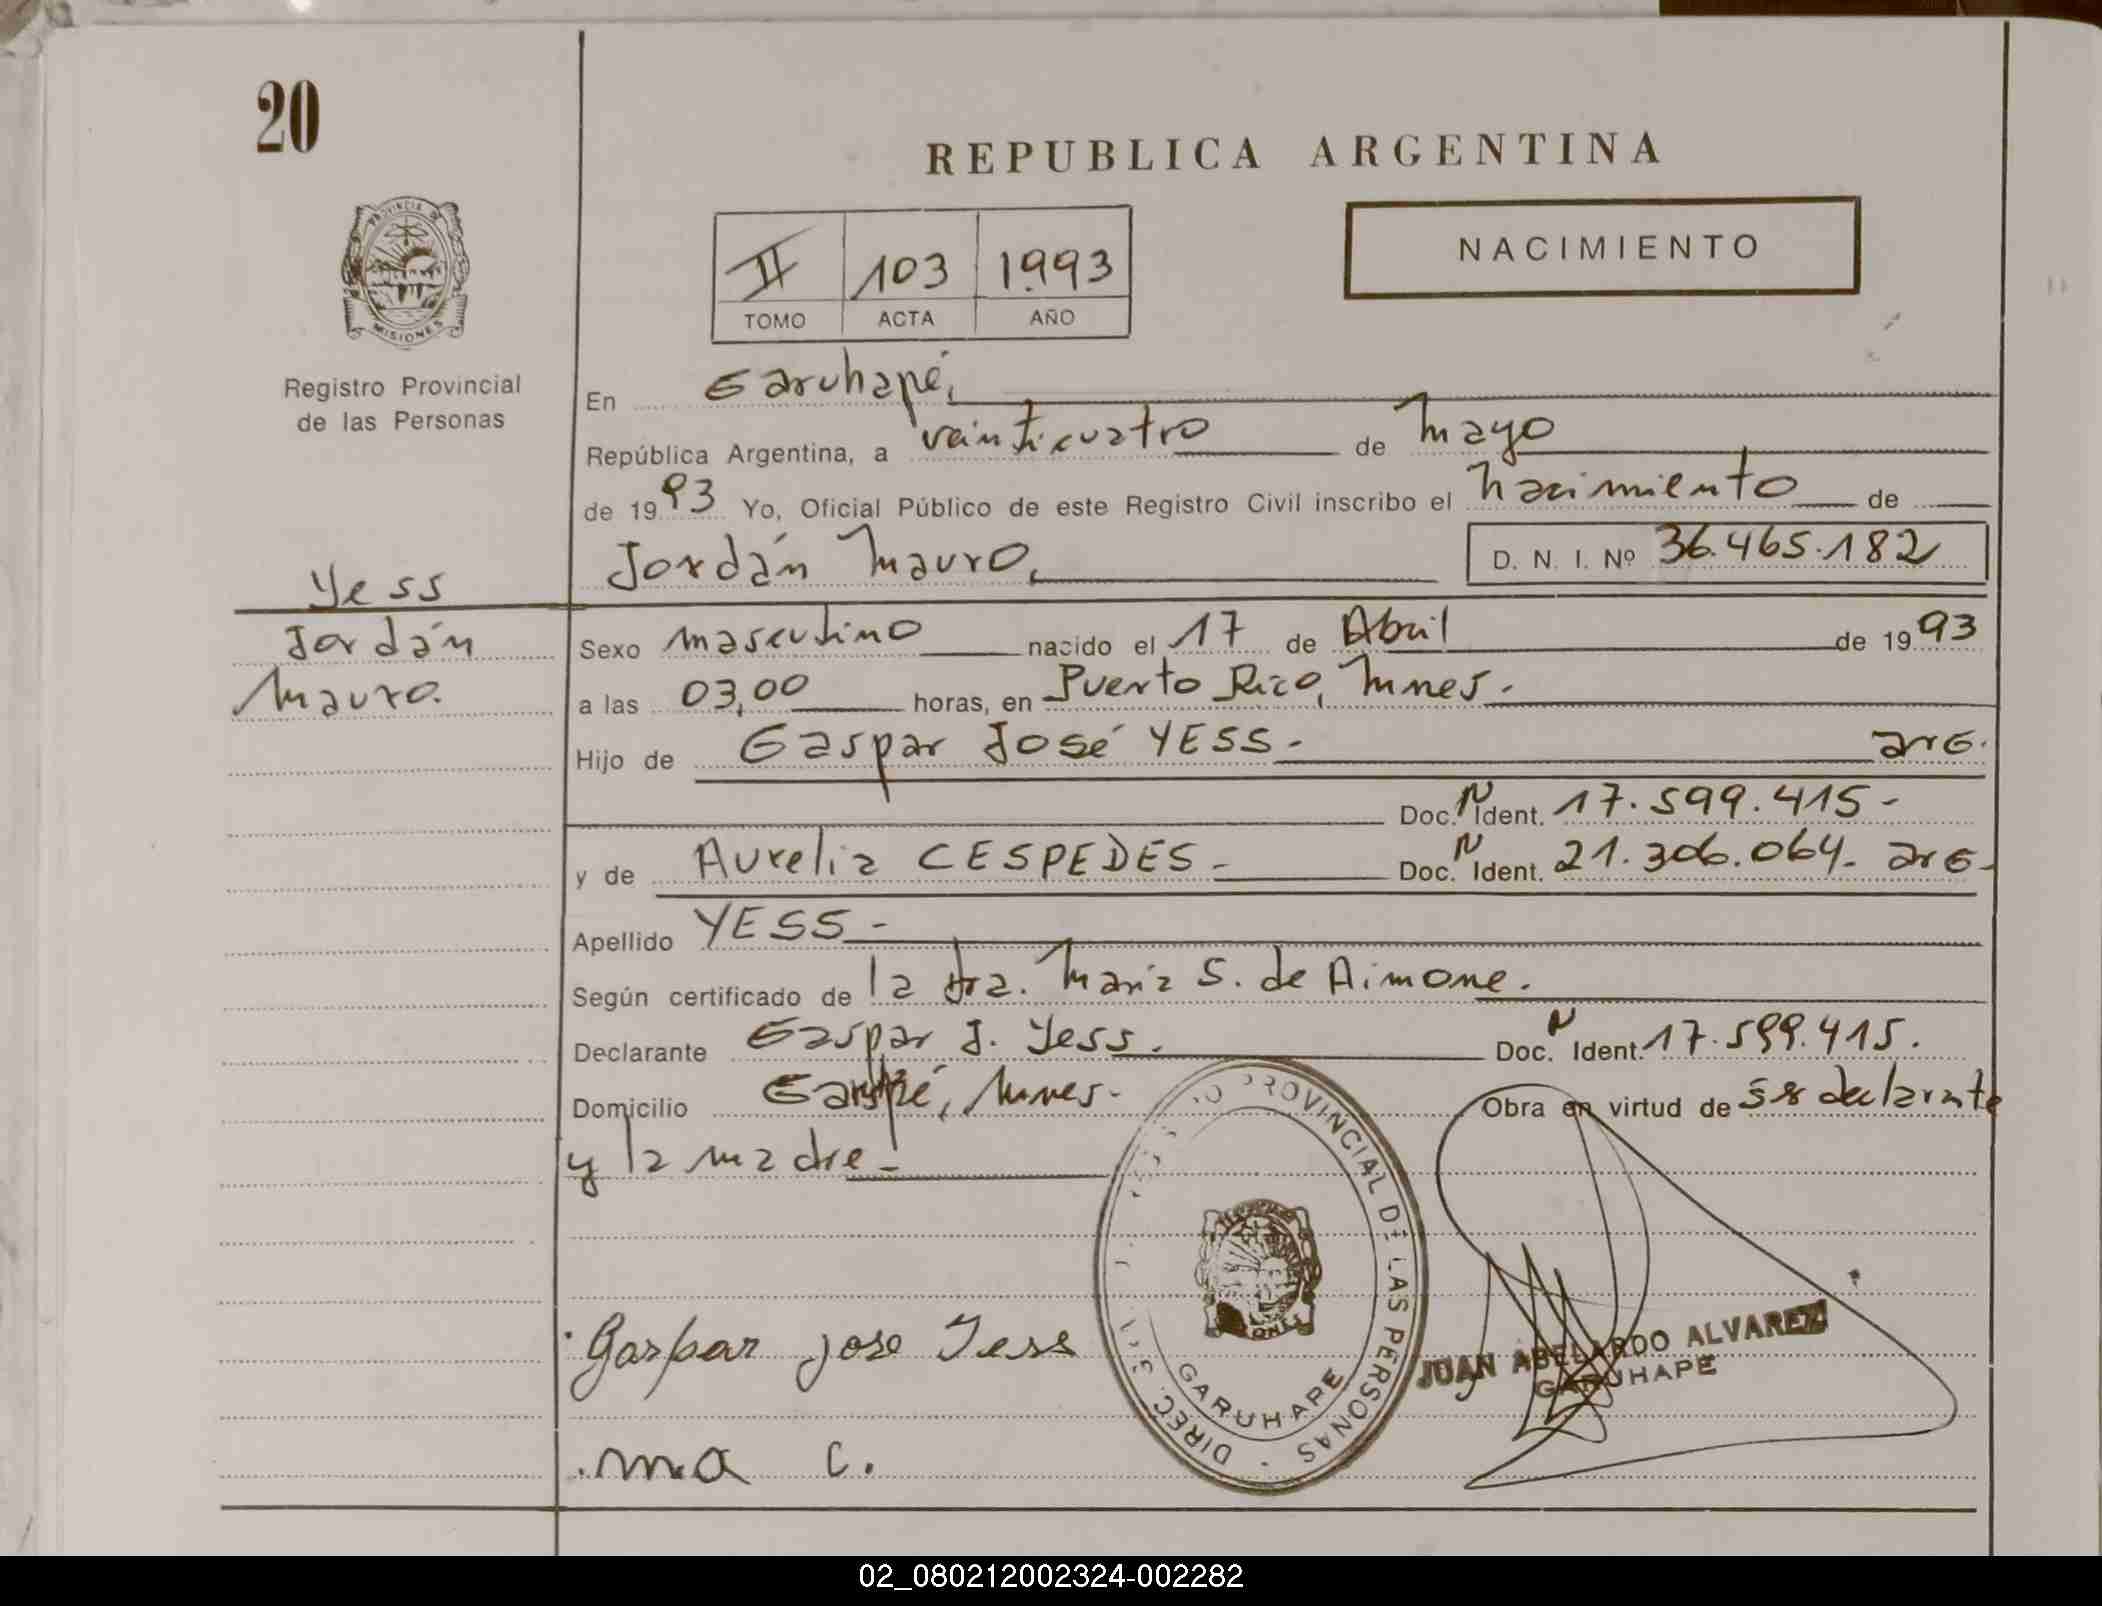 20
REPUBLICA ARGENTINA
PROVINCIA DE
MISIONES
Registro Provincial
de las Personas
II 103 1993
TOMO ACTA AÑO
NACIMIENTO
En Garuhapé,
República Argentina, a veinticuatro de Mayo
de 1993 Yo, Oficial Público de este Registro Civil inscribo el nacimiento de
Jordán Mauro, D. N. I. Nº 36.465.182
Yess
Jordán
Mauro.
Sexo masculino nacido el 17 de Abril de 1993
a las 03,00 horas, en Puerto Rico, Mnes.
Hijo de Gaspar José YESS - arg.
Doc. N Ident. 17.599.415-
y de Aurelia CESPEDES - Doc. N Ident. 21.306.064. arg-
Apellido YESS-
Según certificado de la dra. Maria S. de Aimone.
Declarante Gaspar J. Yess. Doc. N Ident. 17.599.415.
Domicilio Mnes- Obra en virtud de ser declarante
y la madre-
PROVINCIAL DE LAS PERSONAS
GARUHAPE
Gaspar jose Yess
JUAN ABELARDO ALVAREZ
GARUHAPE
.m.a c.
02_080212002324-002282